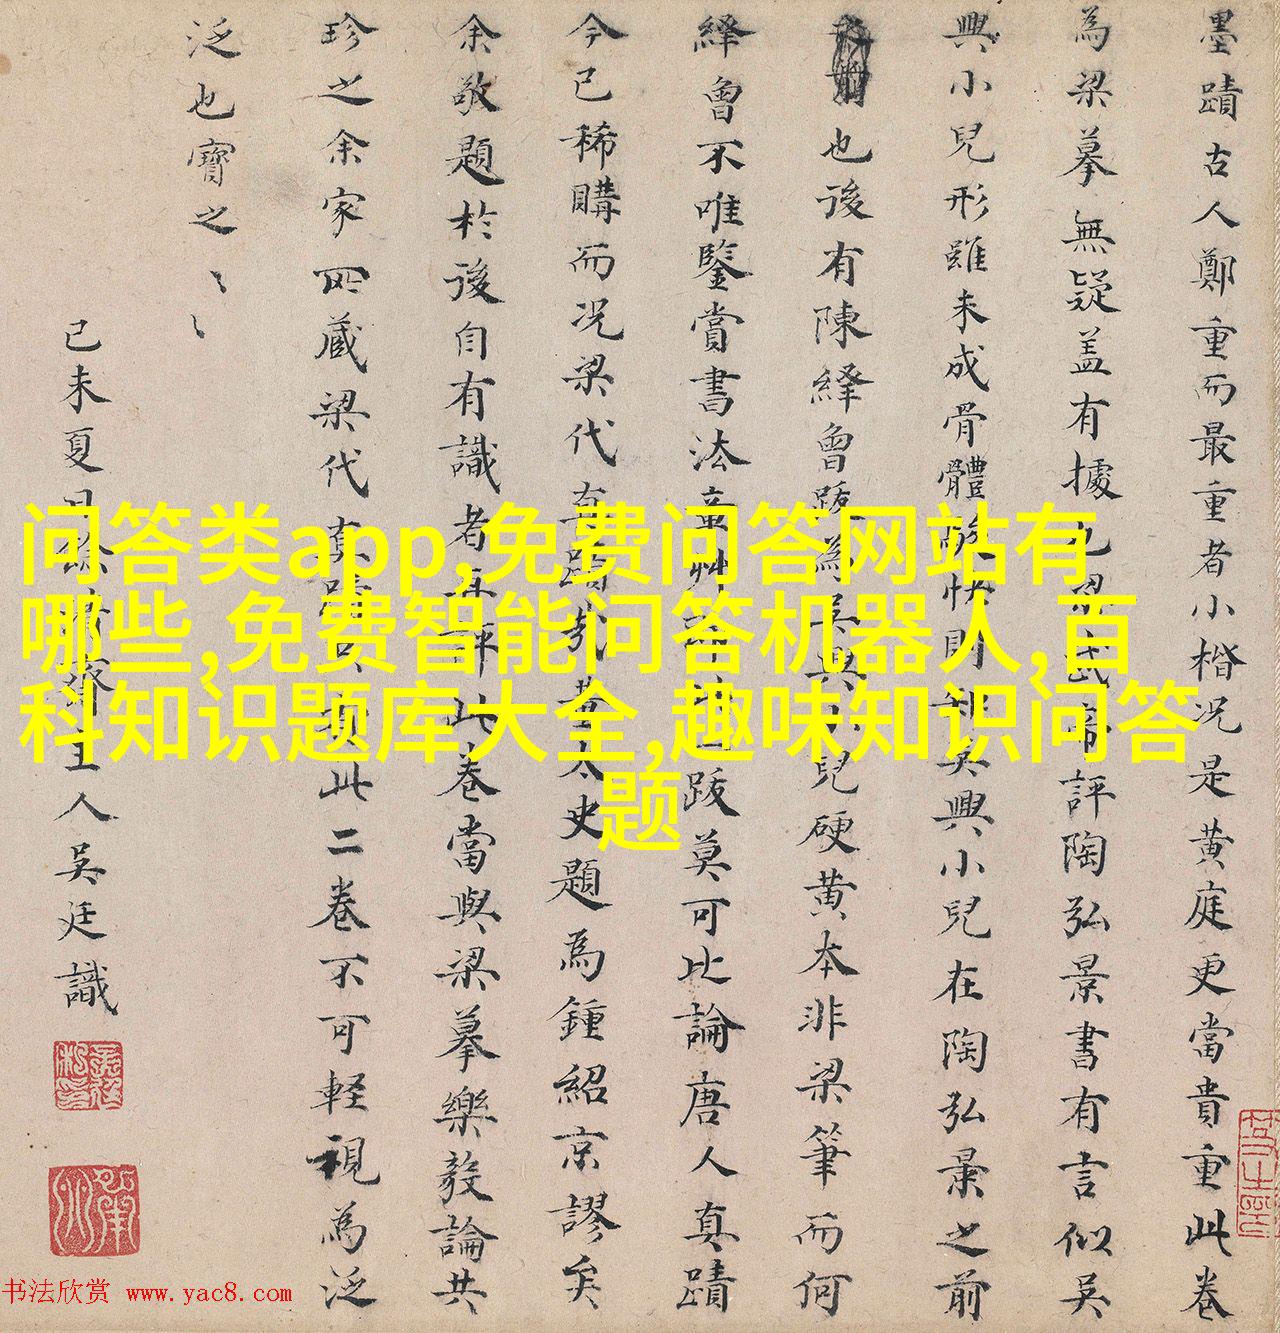 墨蹟古人鄭重而最重者小楷况是黄庭更當貴重此卷
為梁摹無疑盖有據也梁武帝評陶弘景書有言似吴
興小兒形雖未成骨體駿快則知吴興小兒在陶弘景之前
也後有陳繹曾跋為吴興小兒硬黄本非梁筆而何
繹曾不唯鑒賞書法 跋莫可比論唐人真蹟
今已稀購而况梁代真蹟哉黄太史題為鍾紹京謬矣
余敬題於後自有識者再評此卷當與梁摹樂毅論共
珍之余家所藏梁代真蹟 此二卷不可輕視為泛
泛也寳之
己未夏日餘清齋主人吴廷識
问答类app,免费问答网站有
哪些,免费智能问答机器人,百
科知识题库大全,趣味知识问答
题
书法欣赏 www.yac8.com